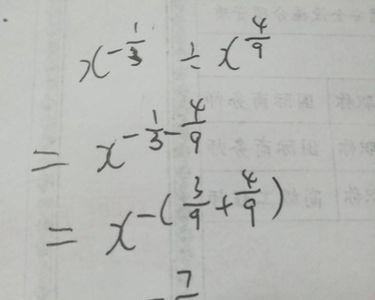 x^{-\frac{1}{3}} ÷ x^{\frac{4}{9}}
= x^{-\frac{1}{3}-\frac{4}{9}}
= x^{-(\frac{3}{9}+\frac{4}{9})}
-7